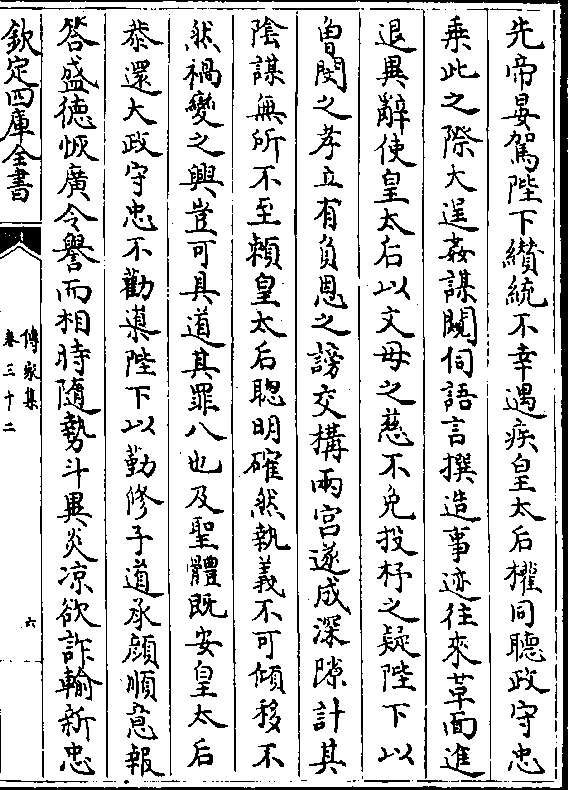 先帝晏駕陛下纉統不幸遇疾皇太后權同聽政守忠
乘此之際大逞姦謀闚伺語言撰造事迹往來革面進
退異辭使皇太后以文母之慈不免投杼之疑陛下以
曾閔之孝立有負恩之謗交構兩宫遂成深隙計其
陰謀無所不至頼皇太后聰明確然執義不可傾移不
然禍變之興豈可具道其罪八也及聖體既安皇太后
恭還大政守忠不勸導陛下以勤修子道承顔順意報
答盛徳恢廣令譽而相時隨勢斗異炎凉欲詐輸新忠
欽定四庫全書
傳家集
卷三十二
六